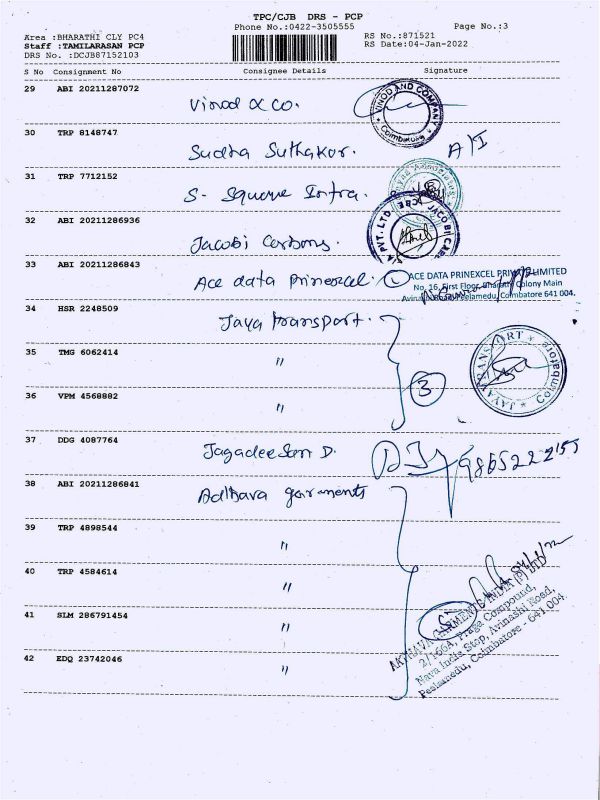 TPC/CJB DRS - PCP
Phone No.:0422-3505555
Page No.:3
Area :BHARATHI CLY PC4
RS No.:871521
Staff :TAMILARASAN PCP
RS Date:04-Jan-2022
DRS No. :DCJB87152103
S No Consignment No Consignee Details Signature
29 ABI 20211287072
Vinod & Co.
VINOD AND COMPANY
Coimbatore
30 TRP 8148747
Sudha Suthakar.
31 TRP 7712152
S- Square Infra.
32 ABI 20211286936
Jacobi Carbons.
33 ABI 20211286843
Ace data Prinexcel. 1
ACE DATA PRINEXCEL PRIVATE LIMITED
No. 16, First Floor, Bharathi Colony Main
Avinashi Road, Peelamedu, Coimbatore 641 004.
34 HSR 2248509
Jaya transport.
35 TMG 6062414
"
JAYA TRANSPORT
Coimbatore
36 VPM 4568882
"
3
37 DDG 4087764
Jagadeesan D.
38 ABI 20211286841
Adhava garments
39 TRP 4898544
"
40 TRP 4584614
"
41 SLM 286791454
"
42 EDQ 23742046
"
GARMENTS INDIA (P) LTD
2/166A, Praga Compound,
Nava India Stop, Avinashi Road,
Peelamedu, Coimbatore - 641 004.